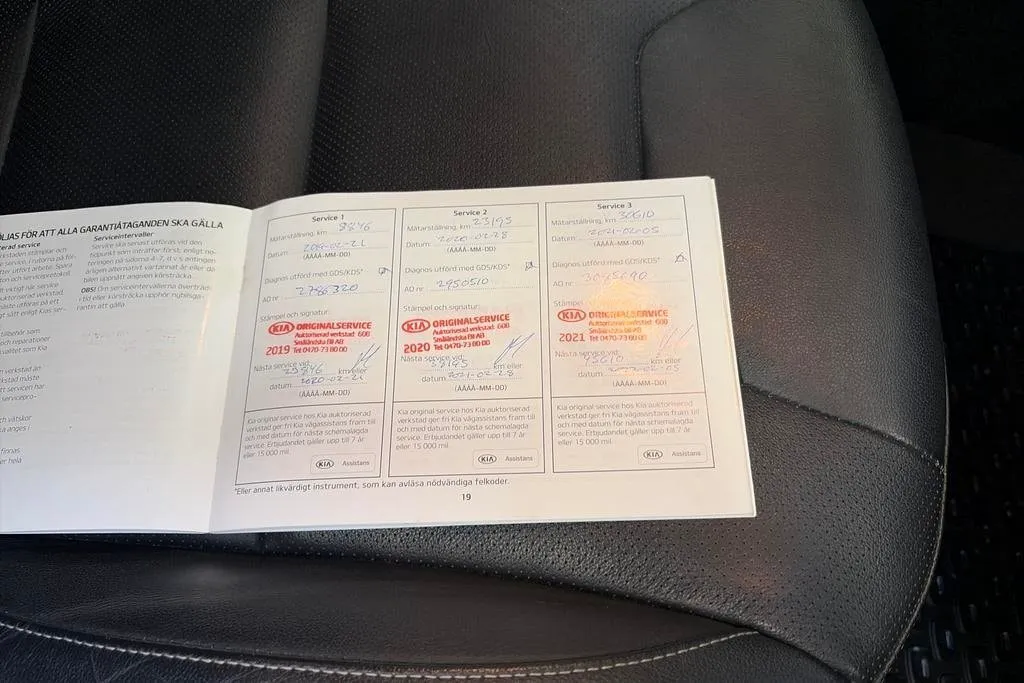 ÖLJAS FÖR ATT ALLA GARANTIÅTAGANDEN SKA GÄLLA
Serviceintervaller
Service ska senast utföras vid den
tidpunkt som inträffar först, enligt no-
teringen på sidorna 4-7, d v s antingen
årligen alternativt vartannat år eller då
bilen uppnått angiven körsträcka.
OBS! Om serviceintervallerna överträds
i tid eller körsträcka upphör nybilsga-
rantin att gälla.
Service 1
Mätarställning, km 8846
Datum: 2019-02-21
(ÅÅÅÅ-MM-DD)
Diagnos utförd med GDS/KDS*
AO nr: 2786320
Stämpel och signatur:
KIA ORIGINALSERVICE
Auktoriserad verkstad: 608
Småländska Bil AB
2019 Tel: 0470-73 80 00
Nästa service vid:
23846 km eller
datum: 2020-02-21
(ÅÅÅÅ-MM-DD)
Kia original service hos Kia auktoriserad
verkstad ger fri Kia vägassistans fram till
och med datum för nästa schemalagda
service. Erbjudandet gäller upp till 7 år
eller 15 000 mil.
KIA Assistans
Service 2
Mätarställning, km 23195
Datum: 2020-02-28
(ÅÅÅÅ-MM-DD)
Diagnos utförd med GDS/KDS*
AO nr: 2950510
Stämpel och signatur:
KIA ORIGINALSERVICE
Auktoriserad verkstad: 608
Småländska Bil AB
2020 Tel: 0470-73 80 00
Nästa service vid:
38195 km eller
datum: 2021-02-28
(ÅÅÅÅ-MM-DD)
Kia original service hos Kia auktoriserad
verkstad ger fri Kia vägassistans fram till
och med datum för nästa schemalagda
service. Erbjudandet gäller upp till 7 år
eller 15 000 mil.
KIA Assistans
Service 3
Mätarställning, km 30610
Datum: 2021-02-05
(ÅÅÅÅ-MM-DD)
Diagnos utförd med GDS/KDS*
AO nr:
Stämpel
KIA ORIGINALSERVICE
Auktoriserad verkstad: 608
Småländska Bil AB
2021 Tel: 0470-73 80 00
Nästa service vid:
45610 km eller
datum: 2022-02-05
(ÅÅÅÅ-MM-DD)
Kia original service hos Kia auktoriserad
verkstad ger fri Kia vägassistans fram till
och med datum för nästa schemalagda
service. Erbjudandet gäller upp till 7 år
eller 15 000 mil.
KIA Assistans
*Eller annat likvärdigt instrument, som kan avläsa nödvändiga felkoder.
19